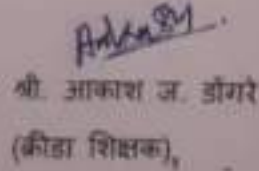 श्री. आकाश ज. डोंगरे
(क्रीडा शिक्षक),